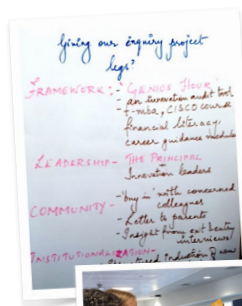 Giving our inquiry project
legs?
FRAMEWORK:- 'GENIUS HOUR'
- an innovation audit tool
- e-mba, CISCO course
financial literacy,
career guidance modules
LEADERSHIP - THE PRINCIPAL
Innovation leaders
COMMUNITY - - 'buy in' with concerned
colleagues
- Letter to parents
- Insight from exit & entry
interviews
INSTITUTIONALIZATION-
induction of new